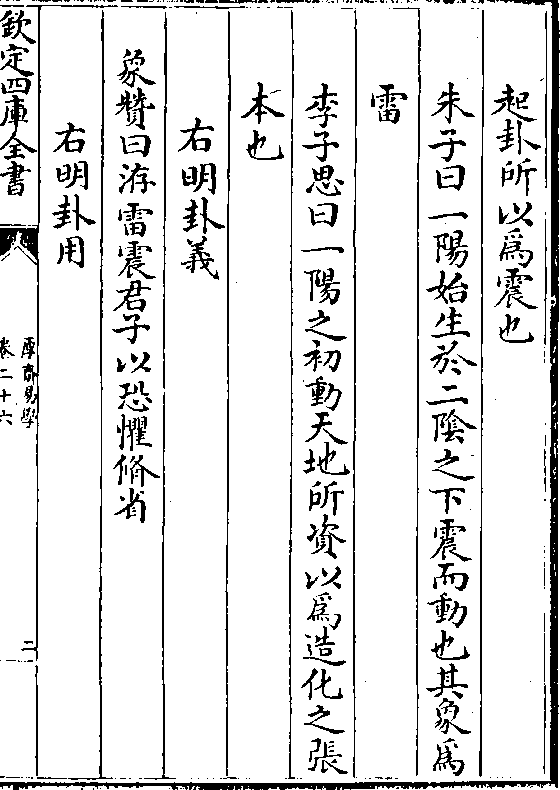 起卦所以爲震也
朱子曰一陽始生於二陰之下震而動也其象爲
雷
李子思曰一陽之初動天地所資以爲造化之張
本也
右明卦義
象贊曰洊雷震君子以恐懼脩省
右明卦用
欽定四庫全書
厚齋易學
卷二十六
二